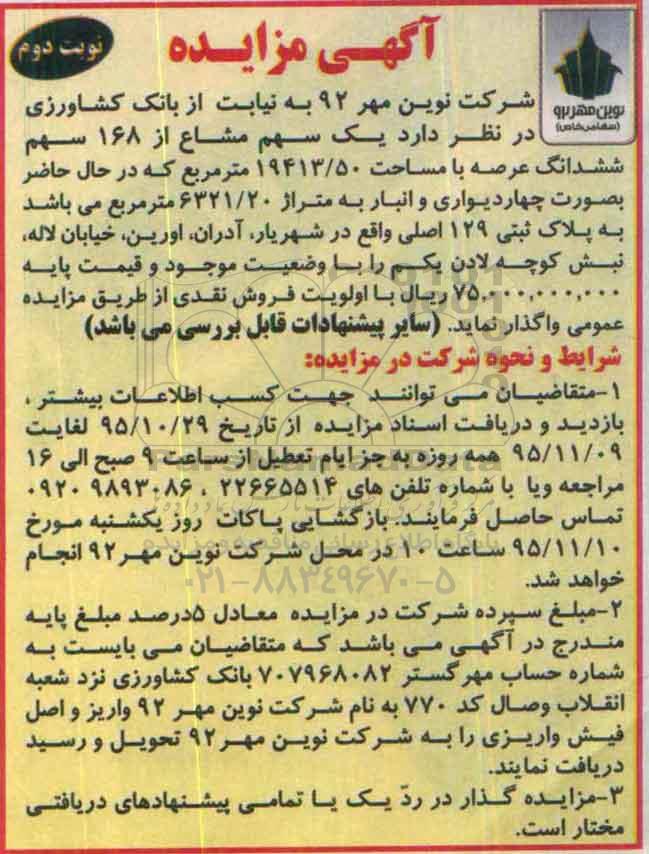 آگهی مزایده
نوبت دوم
نوین مهر ۹۲
(سهامی خاص)
شرکت نوین مهر ۹۲ به نیابت از بانک کشاورزی
در نظر دارد یک سهم مشاع از ۱۶۸ سهم
ششدانگ عرصه با مساحت ۱۹۴۱۳/۵۰ مترمربع که در حال حاضر
بصورت چهاردیواری و انبار به متراژ ۶۳۲۱/۲۰ مترمربع می باشد
به پلاک ثبتی ۱۲۹ اصلی واقع در شهریار، آدران، اورین، خیابان لاله،
نبش کوچه لادن یکم را با وضعیت موجود و قیمت پایه
۷۵,۰۰۰,۰۰۰,۰۰۰ ریال با اولویت فروش نقدی از طریق مزایده
عمومی واگذار نماید. (سایر پیشنهادات قابل بررسی می باشد)
شرایط و نحوه شرکت در مزایده:
۱-متقاضیان می توانند جهت کسب اطلاعات بیشتر ،
بازدید و دریافت اسناد مزایده از تاریخ ۹۵/۱۰/۲۹ لغایت
۹۵/۱۱/۰۹ همه روزه به جز ایام تعطیل از ساعت ۹ صبح الی ۱۶
مراجعه ویا با شماره تلفن های ۲۲۶۶۵۵۱۴ ، ۰۹۲۰ ۹۸۹۳۰۸۶
تماس حاصل فرمایند. بازگشایی پاکات روز یکشنبه مورخ
۹۵/۱۱/۱۰ ساعت ۱۰ در محل شرکت نوین مهر ۹۲ انجام
خواهد شد.
۰۲۱-۸۸۳۴۹۶۷۰-۵
۲-مبلغ سپرده شرکت در مزایده معادل ۵درصد مبلغ پایه
مندرج در آگهی می باشد که متقاضیان می بایست به
شماره حساب مهر گستر ۷۰۷۹۶۸۰۸۲ بانک کشاورزی نزد شعبه
انقلاب وصال کد ۷۷۰ به نام شرکت نوین مهر ۹۲ واریز و اصل
فیش واریزی را به شرکت نوین مهر ۹۲ تحویل و رسید
دریافت نمایند.
۳-مزایده گذار در ردّ یک یا تمامی پیشنهادهای دریافتی
مختار است.